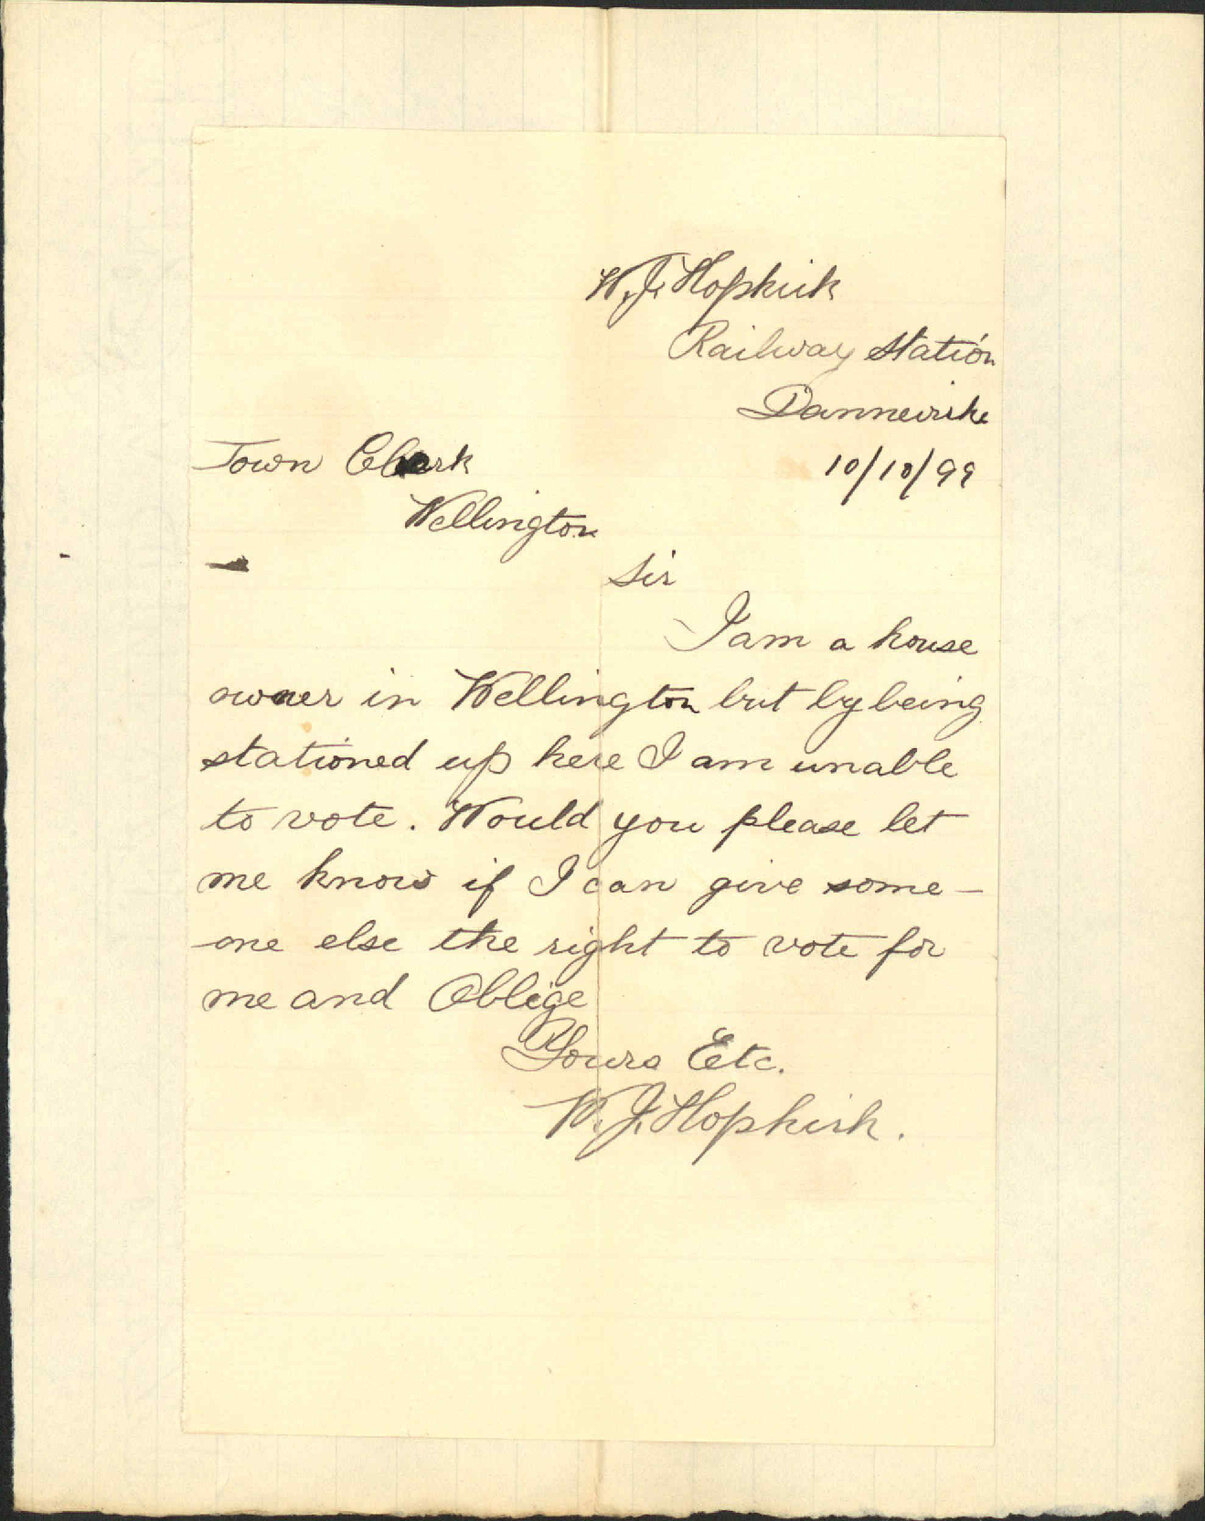 W. J. Hopkirk
Railway Station
Dannevirke
10/10/99
Town Clerk
Wellington
Sir
I am a house
owner in Wellington but by being
stationed up here I am unable
to vote. Would you please let
me know if I can give some-
one else the right to vote for
me and Oblige
Yours Etc.
W. J. Hopkirk.